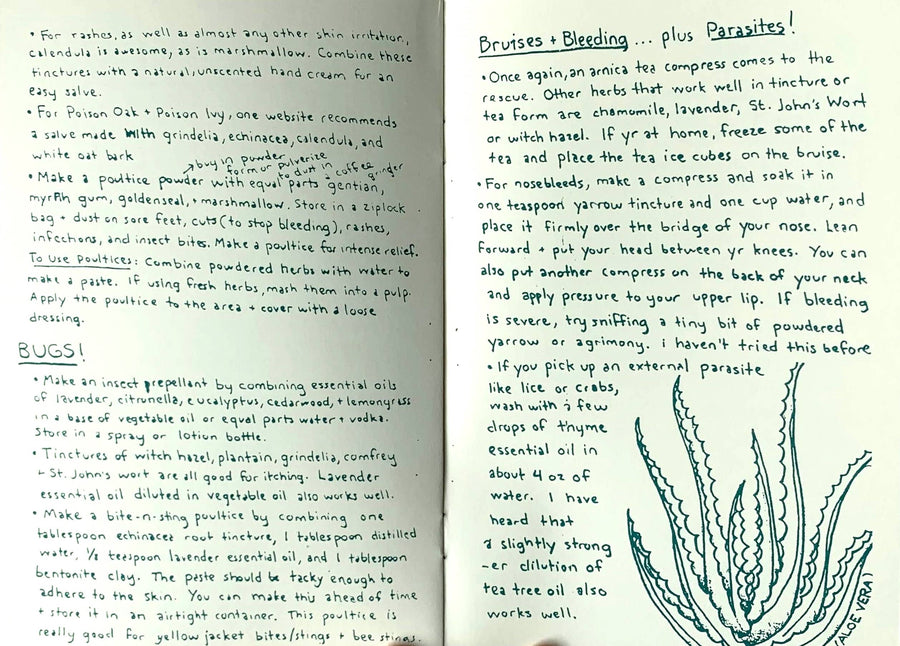 • For rashes, as well as almost any other skin irritation,
calendula is awesome, as is marshmallow. Combine these
tinctures with a natural, unscented hand cream for an
easy salve.
• For Poison Oak + Poison Ivy, one website recommends
a salve made with grindelia, echinacea, calendula, and
white oat bark
→ buy in powder
form or pulverize
to dust in a coffee
grinder
• Make a poultice powder with equal parts gentian,
myrRh gum, goldenseal, + marshmallow. Store in a ziplock
bag + dust on sore feet, cuts (to stop bleeding), rashes,
infections, and insect bites. Make a poultice for intense relief.
To Use Poultices: Combine powdered herbs with water to
make a paste. If using fresh herbs, mash them into a pulp.
Apply the poultice to the area + cover with a loose
dressing.
BUGS!
• Make an insect repellant by combining essential oils
of lavender, citrunella, eucalyptus, cedarwood, + lemongrass
in a base of vegetable oil or equal parts water + vodka.
Store in a spray or lotion bottle.
• Tinctures of witch hazel, plantain, grindelia, comfrey
+ St. John's wort are all good for itching. Lavender
essential oil diluted in vegetable oil also works well.
• Make a bite-n-sting poultice by combining one
tablespoon echinacea root tincture, 1 tablespoon distilled
water, 1/8 teaspoon lavender essential oil, and 1 tablespoon
bentonite clay. The paste should be tacky enough to
adhere to the skin. You can make this ahead of time
+ store it in an airtight container. This poultice is
really good for yellow jacket bites/stings + bee stings.
Bruises + Bleeding ... plus Parasites!
• Once again, an arnica tea compress comes to the
rescue. Other herbs that work well in tincture or
tea form are chamomile, lavender, St. John's Wort
or witch hazel. If yr at home, freeze some of the
tea and place the tea ice cubes on the bruise.
• For nosebleeds, make a compress and soak it in
one teaspoon yarrow tincture and one cup water, and
place it firmly over the bridge of your nose. Lean
forward + put your head between yr knees. You can
also put another compress on the back of your neck
and apply pressure to your upper lip. If bleeding
is severe, try sniffing a tiny bit of powdered
yarrow or agrimony. i haven't tried this before
• If you pick up an external parasite
like lice or crabs,
wash with a few
drops of thyme
essential oil in
about 4 oz of
water. I have
heard that
a slightly strong
-er dilution of
tea tree oil also
works well.
ALOE VERA)